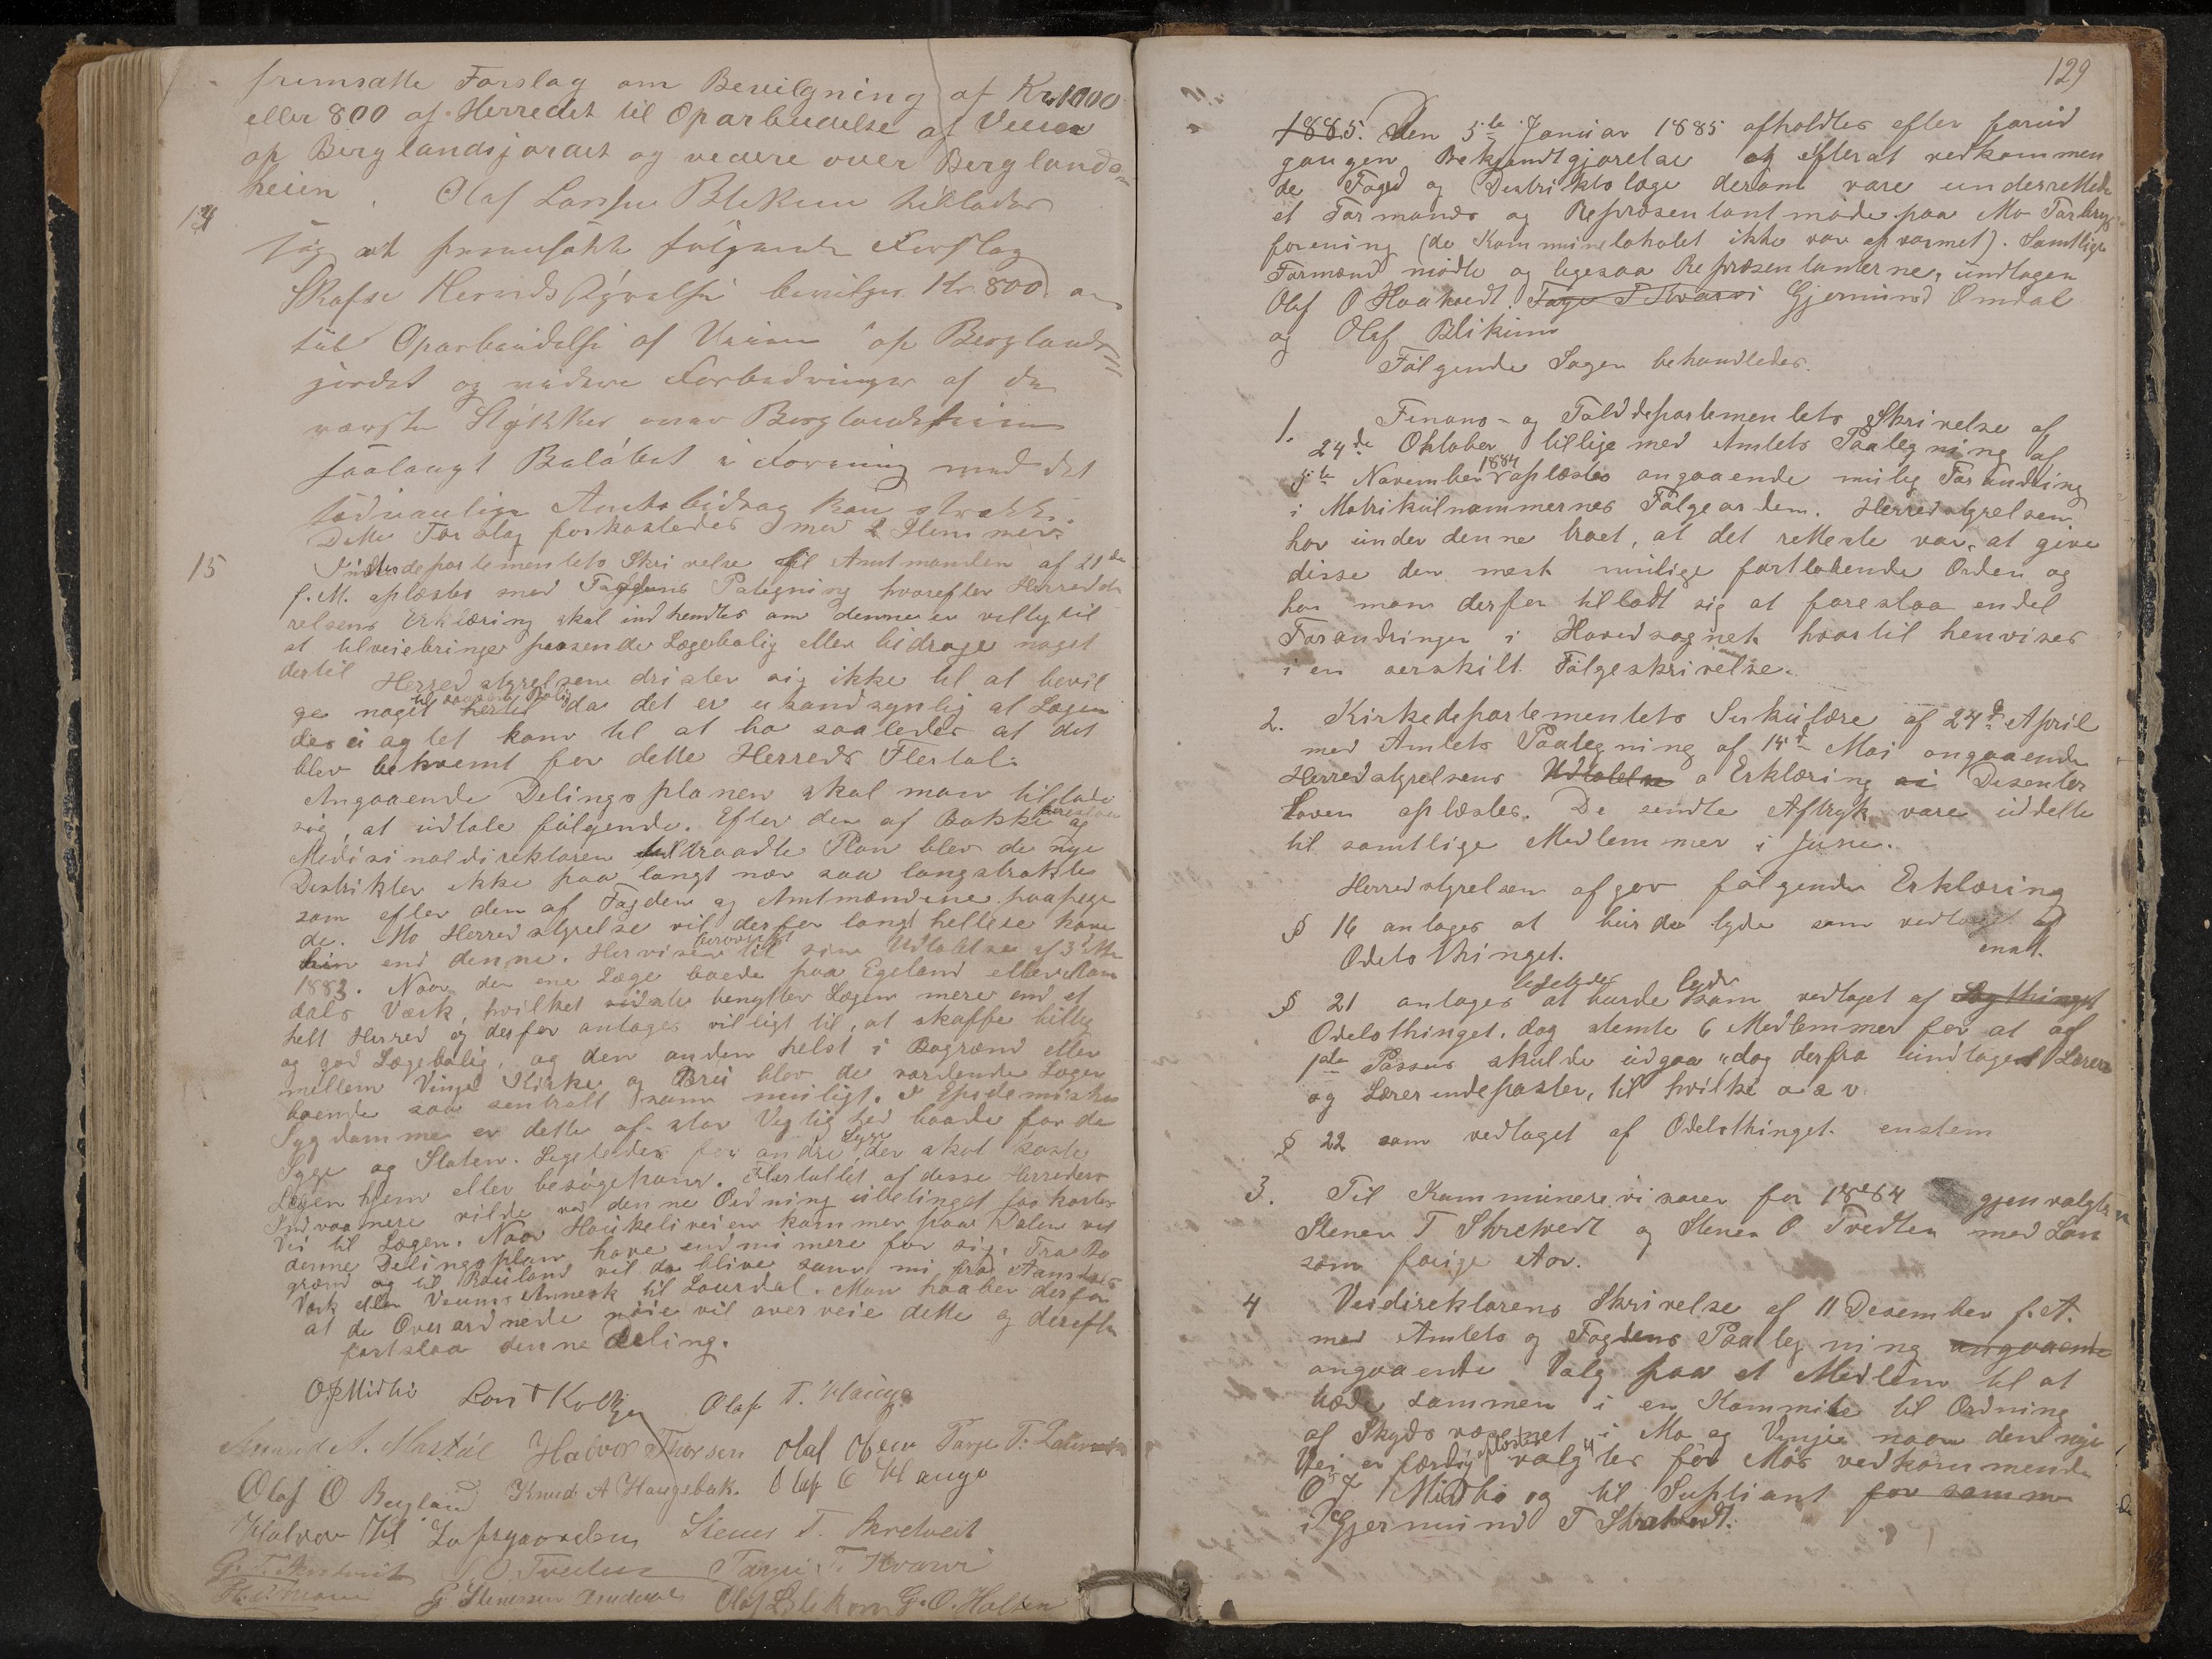 fremsatte Forslag om Bevilgning af Kr 1000
eller 800 af Herredet til Oparbeidelse af Veien
op Berglandsjordet og videre over Berglands
heien.
14 Olaf Larsen Blekum tillader
sig at fremsætte følgende Forslag
Skafse Herredsstyrelse bevilger Kr. 800
til Oparbeidelse af Veien op Berglands
jordet og videre Forbedringer af de
værste Stykker over Berglandsheien
saalangt Beløbet i Forening med det
sædvanlige Amtsbidrag kan strække.
Dette Forslag forkastedes med Stemmer
15 Indredepartementets Skrivelse til Amtmanden af 21de
f. M. oplæstes med Fogdens Pategning hvorefter Herredsty
relsens Erklæring skal indhendtes om denne er villig til
at tilveiebringe passende Lægebolig eller bidrage noget
dertil Herredstyrelsen drister sig ikke til at bevil
ge noget hertil da det er usandsynlig at Lægen
kom til at bo saaledes at det
blev bekvemt for dette Herreds Flertal.
Angaaende Delingsplanen skal man tillade
sig, at udtale følgende. Efter den af Bakke og
Medisinaldirektøren tiltraadte Plan blev de nye
Distrikter ikke paa langt nær saa langstrakte
som efter den af Fogden og Amtmændene paapege
de. Mo Herredstyrelse vil derfor langt hellere have
hin end denne. Henviser til sin Udtalelse af 3d
1883. Naar den ene Læge boede paa Egeland eller Aam
dals Værk, hvilket sidste benytter Lægen mere end et
helt Herred og derfor antages villigt til, at skaffe billig
og god Lægebolig, og den anden helst i Bøgrænd eller
mellem Vinje Kirke og Brei blev de vordende Læger
boende saa sentralt som muligt. I Epidemiske
Sygdomme er dette af stor Vigtighed baade for de
Syge og Staten. Ligeledes for andre Syge der skal hente
Lægen hjem eller besøge ham. Flertallet af desse Herreders
Indvaanere vilde ved denne Ordning ubetinget faa kortere
Vei til Lægen. Naar Haukeliveien kommer paa Dalen vil
denne Delingsplan have endmi mere for sig. Fra Bø
grænd og til Rauland vil da blive som nu fra Aamdals
Værk eller Veums Anneks til Laurdal. Man haaber derfor
at de Overordnede nøie vil overveie dette og derefter
fortslaa denne deling.
O J Midbø Lars T Kolbjør Olaf T. Hauge
Aamund A. Mastøl Halvor Thorsen Olaf Olsen Targe T.
Olaf O Bergland Knud A Haugebak. Olaf E Hauge
Halvor H Loftsgaarden Stener T. Skretveit
G. T. Skretveit S. O. Tveiten Targe T. Kvarvi
G. Stenersen Omdal Olaf L Blekum G. O. Holten
129
1885. Den 5te Januar 1885 afholdtes efter forud
gangen Bekjendtgjørelse og efterat vedkommen
de Foged og Distriktslæge derom vare underrettede
et Formands og Repræsentantmøde paa Mo Forbrugs
forening (da Kommunelokalet ikke var opvarmet). Samtlige
Formænd mødte og ligesaa Repræsentanterne, undtagen
Olaf O Haakvedt. Targe T Kvarvi Gjermund Omdal
og Olaf Blikum
Følgende Sager behandledes.
1. Finans- og Tolddepartementets Skrivelse af
24de Oktober tillige med Amtets Paategning af
5te November 1884 oplæstes angaaende mulig Forandring
i Matrikulnummernes Følgeorden. Herredstyrelsen
har under denne troet, at det retteste var, at give
disse den mest mulige fortløbende Orden og
har man derfor tilladt sig at foreslaa endel
Forandringer i Hovedsognet hvortil henvises
i en særskilt Følgeskrivelse.
2. Kirkedepartementets Sirkulære af 24d April
med Amtets Paategning af 15d Mai angaaende
Herredstyrelsens Udtalelse o Erklæring ai Disenter
Loven oplæstes. De sendte Aftryk vare uddelte
til samtlige Medlemmer i June.
Herredstyrelsen afgav følgende Erklæring
§ 16 antages at burde lyde som vedtaget af
Odelsthinget. enst.
§ 21 antages ligeledes at burde lyde som vedtaget af Lagthinget
Odelsthinget. dog stemte 6 Medlemmer for at af
1ste Passus skulde udgaa "dog derfra undtaget Lærer
og Lærerindeposter, til hvilke o s v.
§ 22 som vedtaget af Odelsthinget. enstem
3. Til Kommunerevisorer for 1884 gjenvalgtes
Stener T Skretvedt og Stener O Tvedten med Løn
som forige Aar.
4 Veidirektørens Skrivelse af 11 Desember f. A.
med Amtets og Fogdens Paategning angaaende
angaaende Valg paa et Medlem til at
træde sammen i en Kommite til Ordning
af Skydsvæsenet i Mo og Vinje naar den nye
Vei er færdig oplæstes valgtes for Mos vedkommende
O J Midbø og til Supliant for samme
Gjermund T Skretvedt.